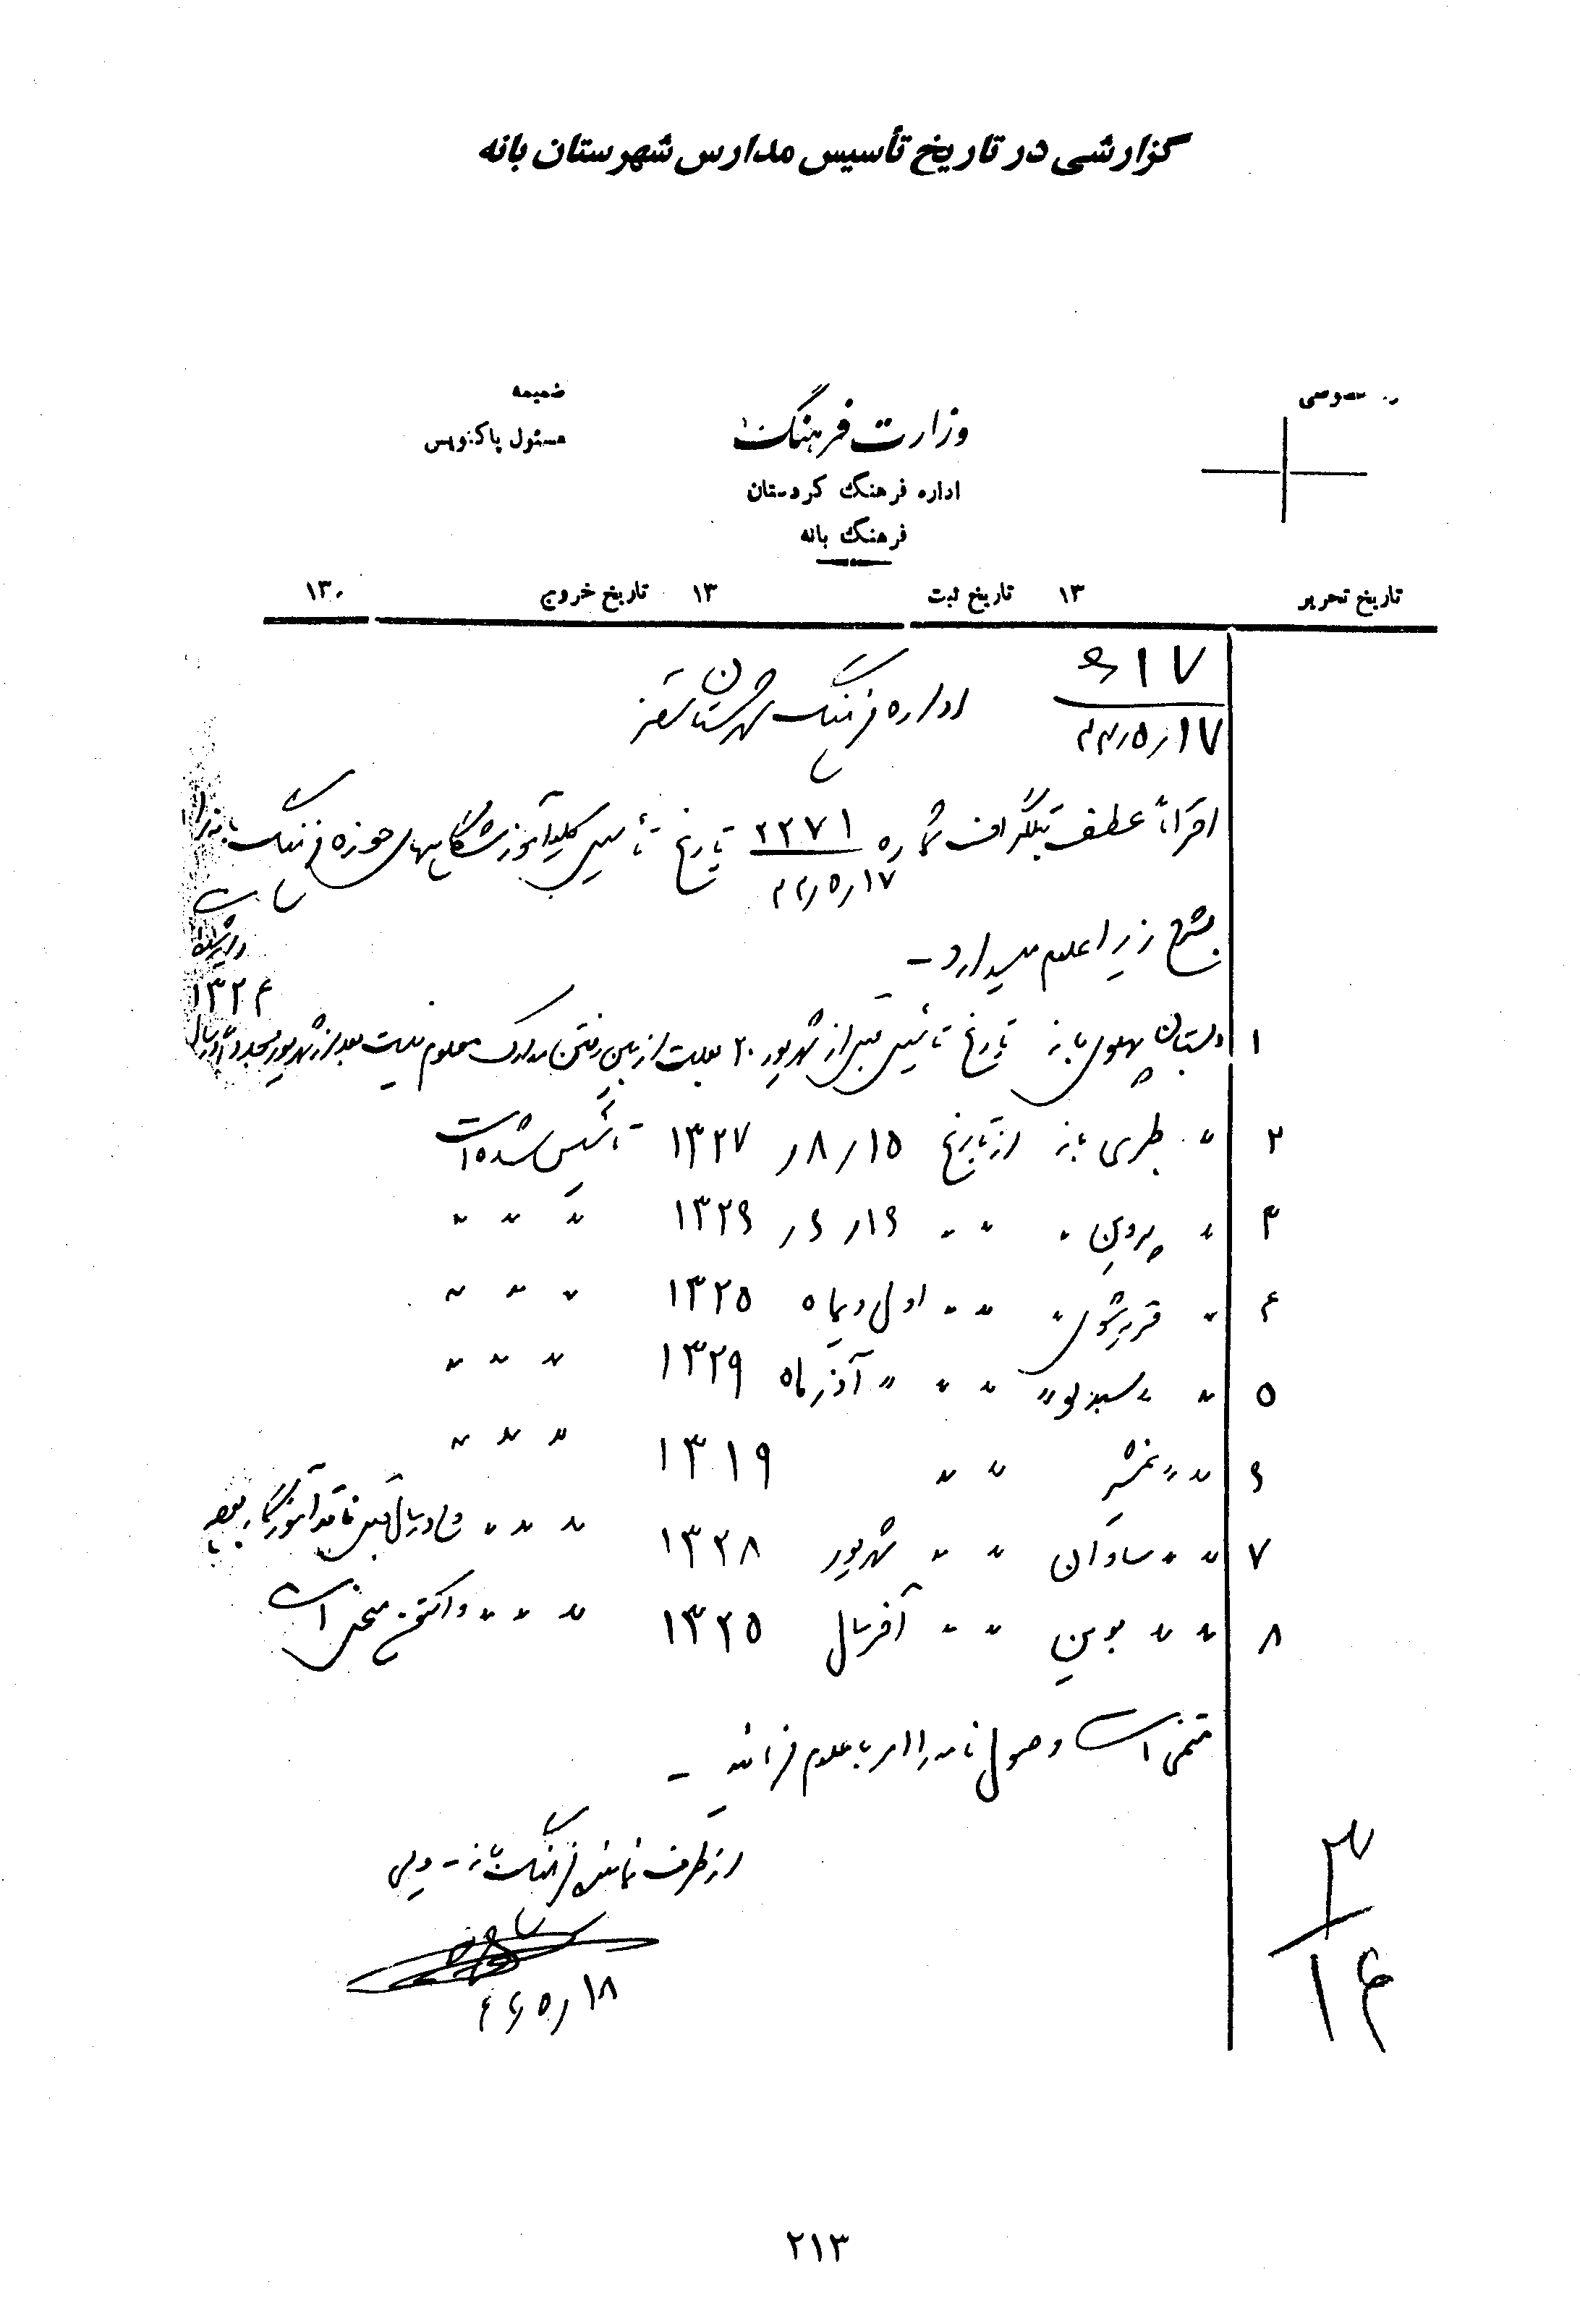 گزارشی در تاریخ تأسیس مدارس شهرستان بانه
ضمیمه
مسئول پاکنویس
وزارت فرهنگ
اداره فرهنگ کردستان
فرهنگ بانه
تاریخ تحریر ۱۳ تاریخ ثبت ۱۳ تاریخ خروج ۱۳۰
۶۱۷
۱۷ر۵ر۳۳
اداره فرهنگ شهرستان سقز
احتراماً عطف تلگراف شماره ۲۲۷۱ تاریخ تأسیس کلیه آموزشگاههای حوزه فرهنگ بانه را
۱۷ر۵ر۳۳
بشرح زیر اعلام میدارد -
۱ دبستان پهلوی بانه تاریخ تأسیس قبل از شهریور ۲۰ بعلت از بین رفتن مدارک معلوم نیست بعد از شهریور مجدداً در سال
۱۳۲۴
۲ " بانه از تاریخ ۱۵ر۸ر ۱۳۲۷ تأسیس شده است
۳ " پروین " " " ۱۶ر۶ر ۱۳۲۶ " " "
۴ " " " " اول دیماه ۱۳۲۵ " " "
۵ " " سبدلو " " " " آذر ماه ۱۳۲۹ " " "
۶ " " نمشیر " " ۱۳۱۹ " " "
۷ " " ساوان " " شهریور ۱۳۲۸ " " "
۸ " " بوین " " آخر سال ۱۳۲۵ " " " و اکنون منحل است
متمنی است وصول نامه را اعلام فرمائید -
از طرف نماینده فرهنگ بانه -
۱۸ر۵ر
۳
۱۴
۲۱۳